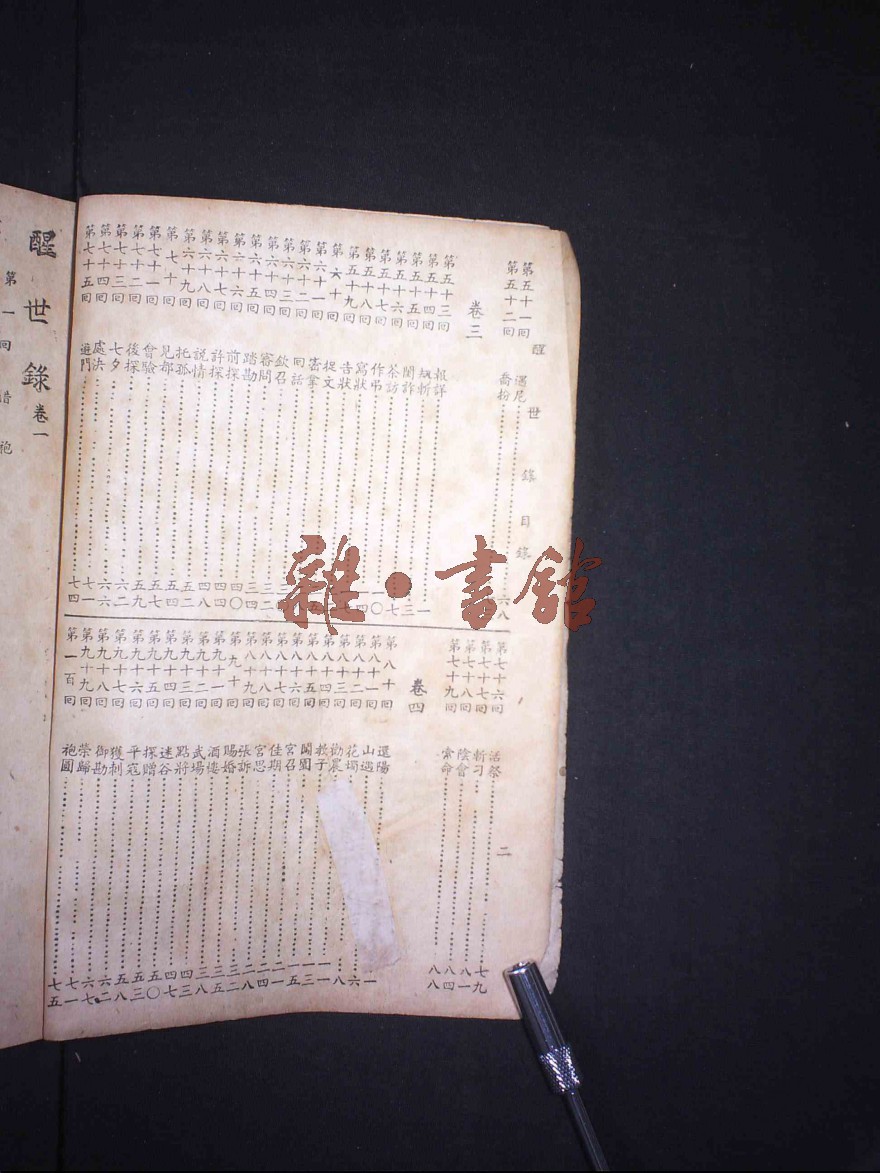 醒世錄目錄　二
第五十一回　遇尼
第五十二回　喬扮　六八
卷三
第五十三回　報詳　一
第五十四回　三
第五十五回　七
第五十六回　茶訪
第五十七回　作弔
第五十八回　寫狀
第五十九回　告狀
第六十回　捉文
第六十一回　密拿
第六十二回　回話
第六十三回　欽召
第六十四回　審問　三四
第六十五回　踏勘　四〇
第六十六回　前探　四四
第六十七回　許探　四八
第六十八回　說情　五二
第六十九回　托孤　五四
第七十回　見都　五七
第七十一回　會驗　五九
第七十二回　後探　六二
第七十三回　七夕　六六
第七十四回　處決　七一
第七十五回　遊門　七四
第七十六回　活祭　七九
第七十七回　斬刁　八一
第七十八回　陰會　八四
第七十九回　索命　八八
卷四
第八十回　還陽　一
第八十一回　山遇　六
第八十二回　花燭　八
第八十三回　勸農　一一
第八十四回　教子　一三
第八十五回　鬧園　一五
第八十六回　宮召　二一
第八十七回　佳期　二四
第八十八回　宮思　二八
第八十九回　張訴　三二
第九十回　賜婚　三五
第九十一回　酒樓　三八
第九十二回　武場　四三
第九十三回　點將　四七
第九十四回　迷谷　五〇
第九十五回　探贈　五三
第九十六回　平寇　五八
第九十七回　獲刺　六二
第九十八回　御勘　六七
第九十九回　榮歸　七一
第一百回　袍圓　七五
醒世錄卷一
第一回
雜·書館